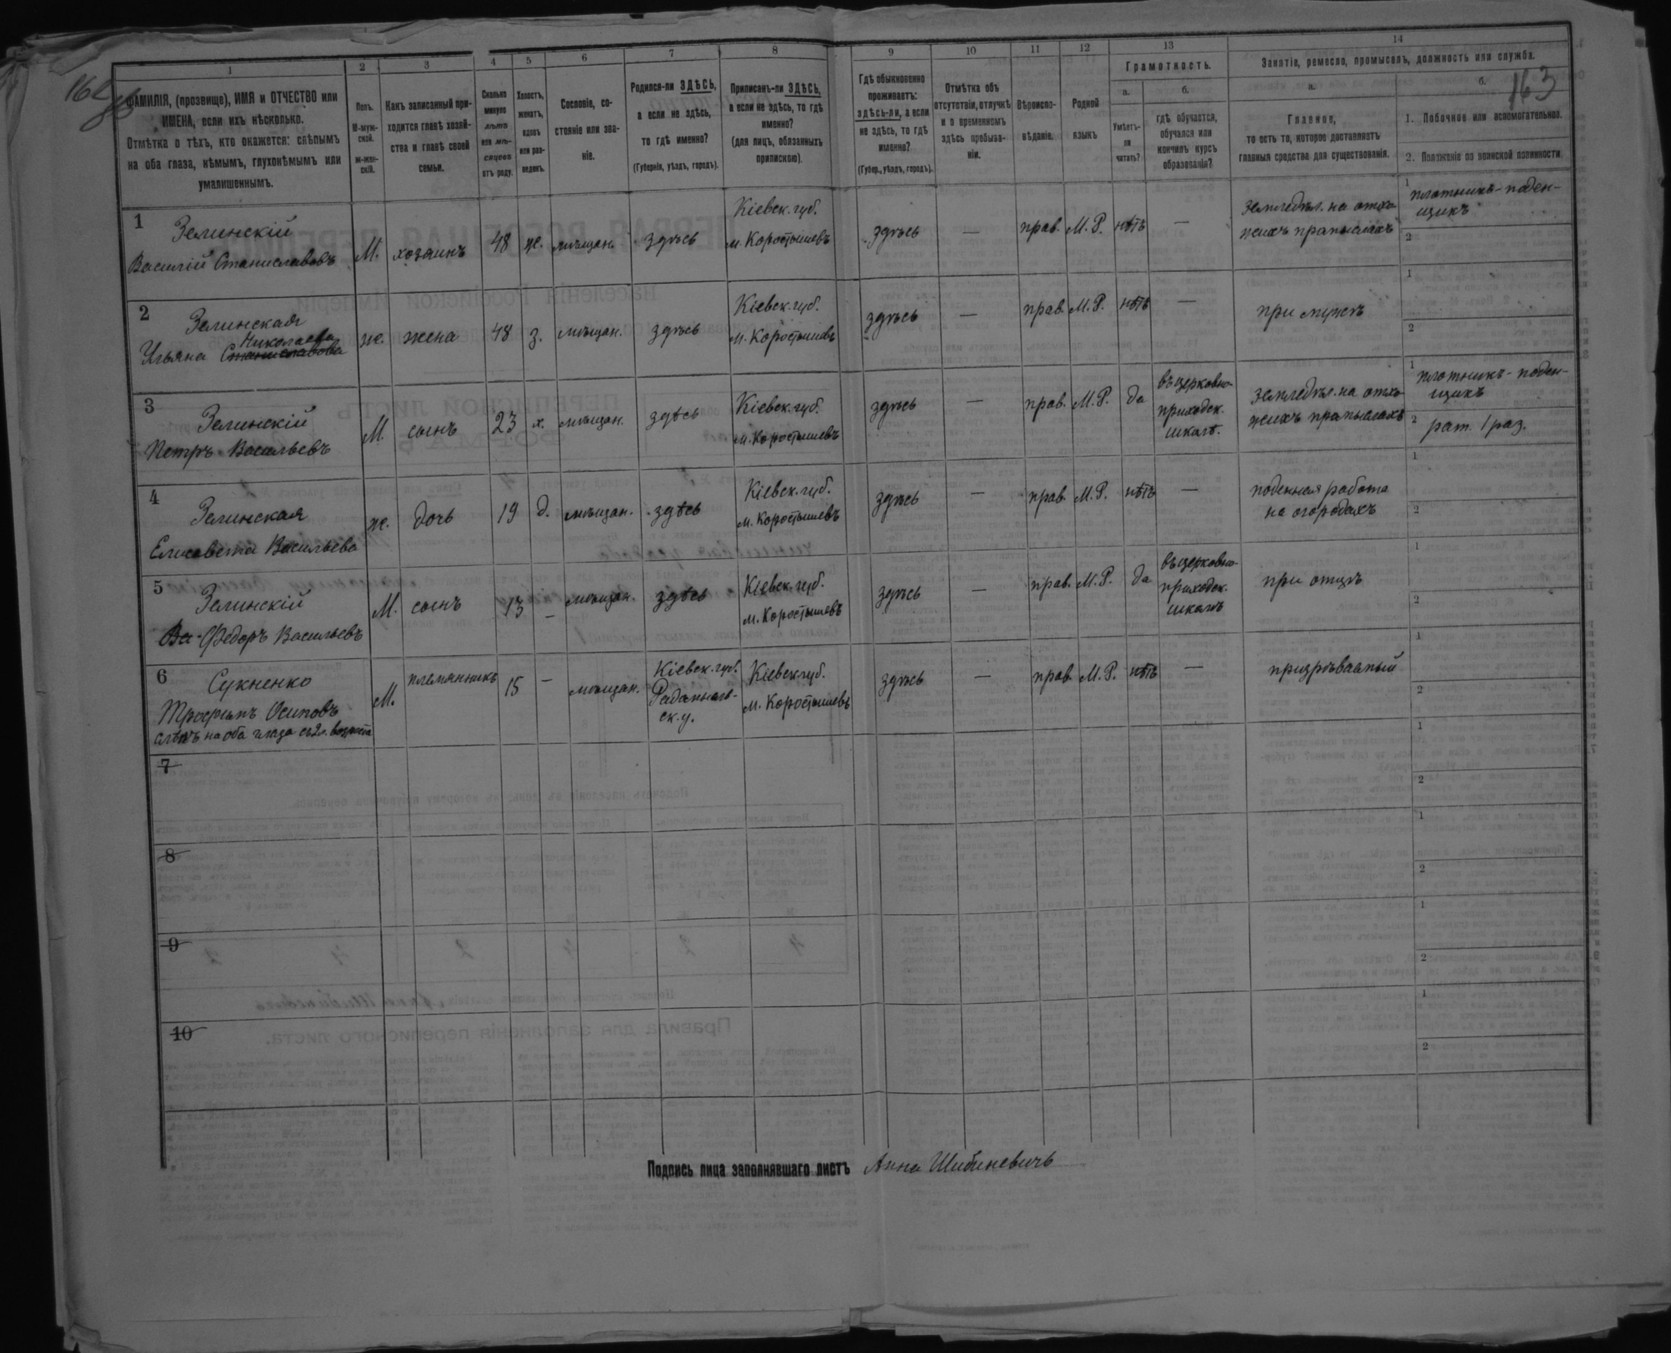 162 об
163
1
2
3
4
5
6
7
8
9
10
11
12
13
14
ФАМИЛІЯ, (прозвище), ИМЯ и ОТЧЕСТВО или
ИМЕНА, если ихъ нѣсколько.
Отмѣтка о тѣхъ, кто окажется: слѣпымъ
на оба глаза, нѣмымъ, глухонѣмымъ или
умалишеннымъ.
Полъ.
М-муж-
ской.
Ж-жен-
скій.
Какъ записанный при-
ходится главѣ хозяй-
ства и главѣ своей
семьи.
Сколько
минуло
лѣтъ
или мѣ-
сяцевъ
отъ роду.
Холостъ,
женатъ,
вдовъ
или раз-
веденъ.
Сословіе, со-
стояніе или зва-
ніе.
Родился-ли ЗДѢСЬ,
а если не здѣсь,
то гдѣ именно?
(Губернія, уѣздъ, городъ).
Приписанъ-ли ЗДѢСЬ,
а если не здѣсь, то гдѣ
именно?
(для лицъ, обязанныхъ
припискою).
Гдѣ обыкновенно
проживаетъ:
здѣсь-ли, а если
не здѣсь, то гдѣ
именно?
(Губер., уѣздъ, городъ).
Отмѣтка объ
отсутствіи, отлучкѣ
и о временномъ
здѣсь пребыва-
ніи.
Вѣроиспо-
вѣданіе.
Родной
языкъ
Грамотность.
а.
Умѣетъ-
ли
читать?
б.
гдѣ обучается,
обучался или
кончилъ курсъ
образованія?
Занятіе, ремесло, промыселъ, должность или служба.
а.
Главное,
то есть то, которое доставляетъ
главныя средства для существованія.
б.
1. Побочное или вспомогательное.
2. Положеніе по воинской повинности
1
Зелинскій
Василій Станиславовъ
М. хозяинъ 48 ж. мѣщан. здѣсь
Кіевск. губ.
м. Коростышевъ
здѣсь — прав. М.Р. нѣтъ —
земледѣл. на отхо
жихъ промыслахъ
1 плотникъ-поден-
щикъ
2
2
Зелинская
Николаева
Ульяна Станиславова
ж. жена 48 з. мѣщан. здѣсь
Кіевск. губ.
м. Коростышевъ
здѣсь — прав. М.Р. нѣтъ —
при мужѣ
1
2
3
Зелинскій
Петръ Васильевъ
М. сынъ 23 х. мѣщан. здѣсь
Кіевск. губ.
м. Коростышевъ
здѣсь — прав. М.Р. да
въ церковно-
приходск.
школѣ.
земледѣл. на отхо
жихъ промыслахъ
1 плотникъ-поден-
щикъ
2 рат. 1 раз.
4
Зелинская
Елисавета Васильева
ж. дочь 19 д. мѣщан. здѣсь
Кіевск. губ.
м. Коростышевъ
здѣсь — прав. М.Р. нѣтъ —
поденная работа
на огородахъ
1
2
5
Зелинскій
Ва Ѳедоръ Васильевъ
М. сынъ 13 — мѣщан. здѣсь
Кіевск. губ.
м. Коростышевъ
здѣсь — прав. М.Р. да
въ церковно-
приходск.
школѣ
при отцѣ
1
2
6
Сукненко
Трофимъ Осиповъ
слѣпъ на оба глаза съ 2 л. возраста
М. племянникъ 15 — мѣщан.
Кіевск. губ.
Радомысль-
ск. у.
Кіевск. губ.
м. Коростышевъ
здѣсь — прав. М.Р. нѣтъ —
призрѣваемый
1
2
7
1
2
8
1
2
9
1
2
10
1
2
Подпись лица заполнявшаго листъ Анна Шибиневичъ